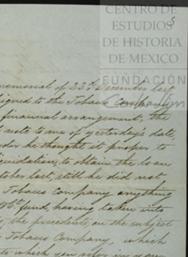 CENTRO DE
ESTUDIOS
DE HISTORIA
DE MEXICO
FUNDACIÓN
5
memorial of 23rd December last
signed to the Tobacco Company
financial arrangement, the
note to me of yesterday's date
he thought it proper to
liquidation, to obtain the loan
October last, still he did not,
Tobacco Company anything
fund, having taken into
the precedents on the subject
Tobacco Company, which
to which you